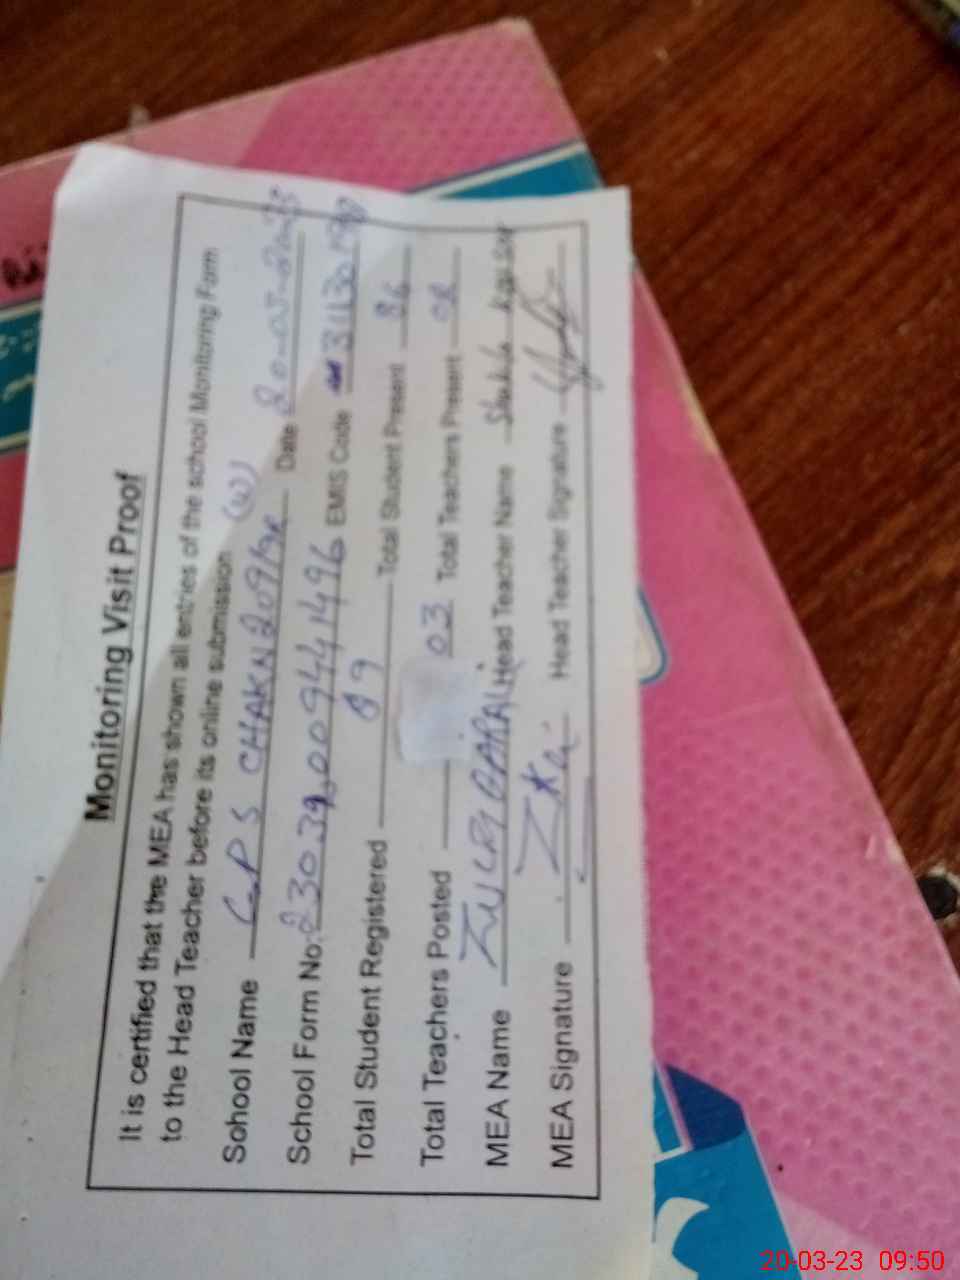 Monitoring Visit Proof
It is certified that the MEA has shown all entries of the school Monitoring Form
to the Head Teacher before its online submission
School Name GPS CHAK N 209/9R (W) Date 20-03-2023
School Form No. EMIS Code
Total Student Registered 89 Total Student Present 86
Total Teachers Posted 03 Total Teachers Present 02
MEA Name ZULFIQAR ALI Head Teacher Name
MEA Signature Head Teacher Signature
20-03-23 09:50